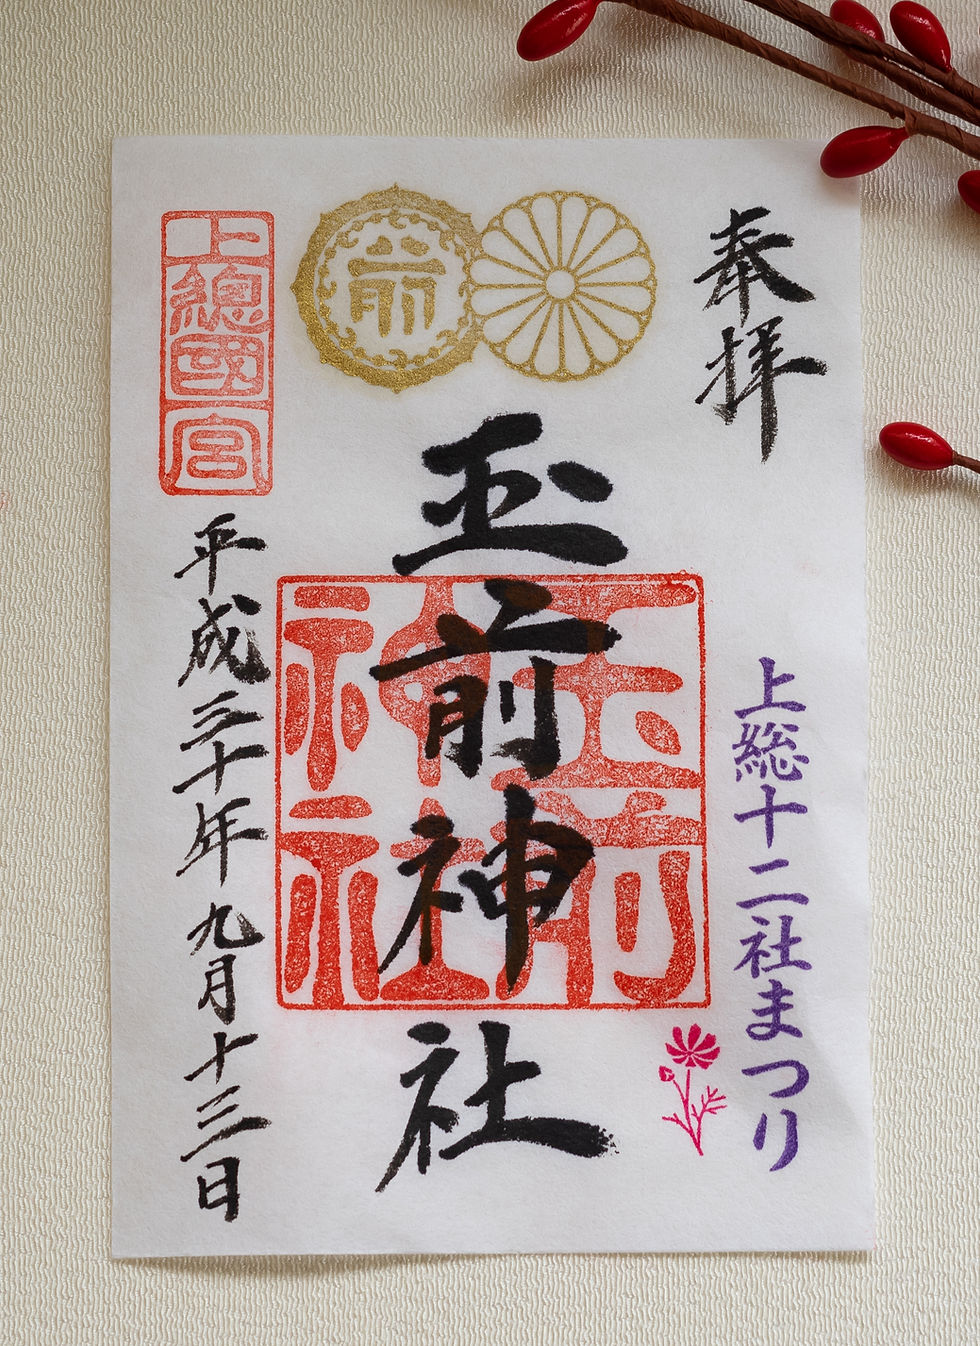 奉拝
上総十二社まつり
前
玉前神社
玉前神社
上總國一宮
平成三十年九月十三日